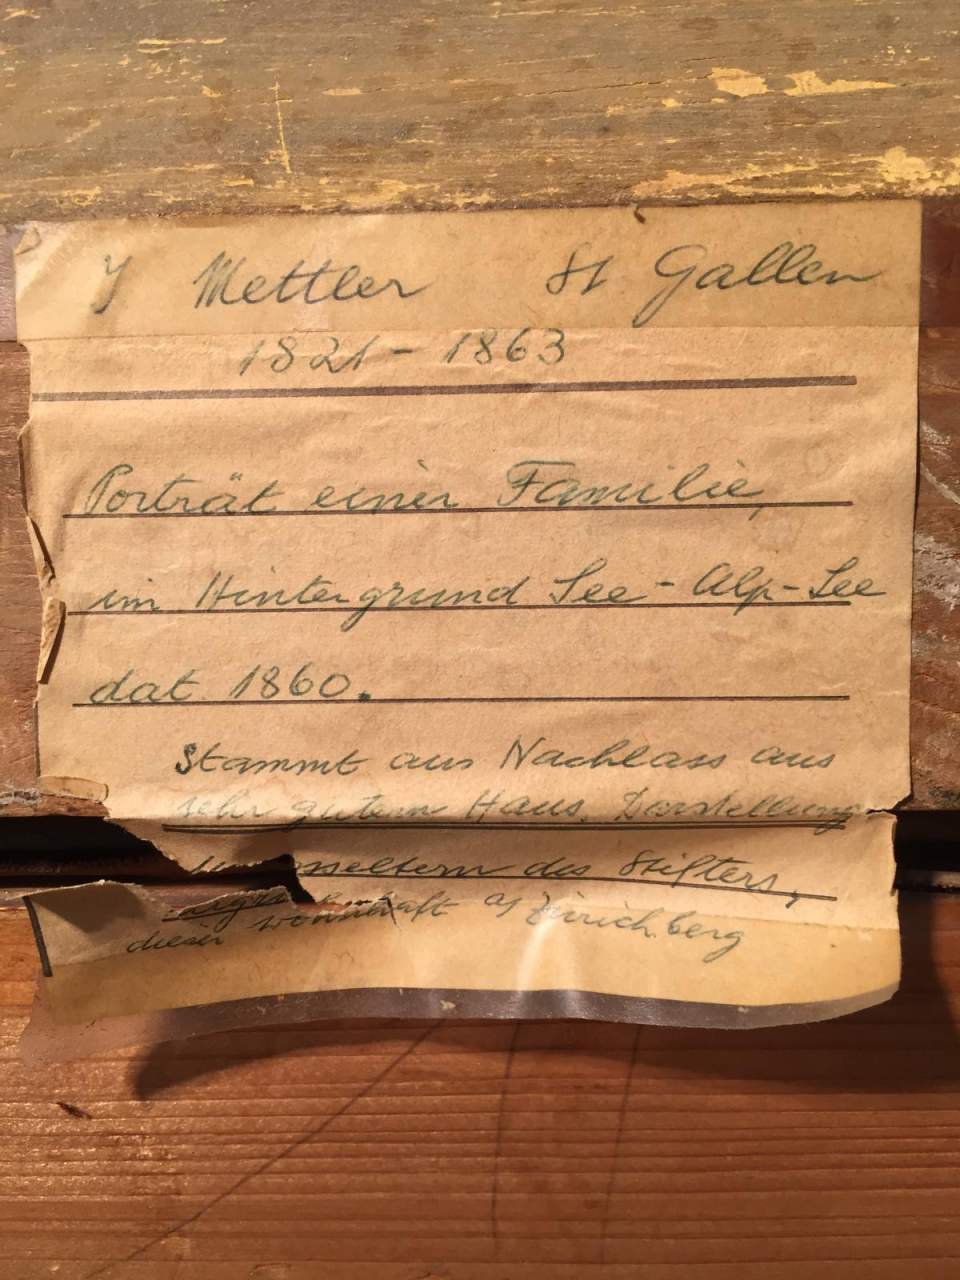 J Mettler St Gallen
1821 - 1863
Porträt einer Familie,
im Hintergrund See-Alp-See
dat. 1860.
Stammt aus Nachlass aus
sehr gutem Haus. Darstellung
des Stifters,
dieser wohnhaft a/ Zürichberg